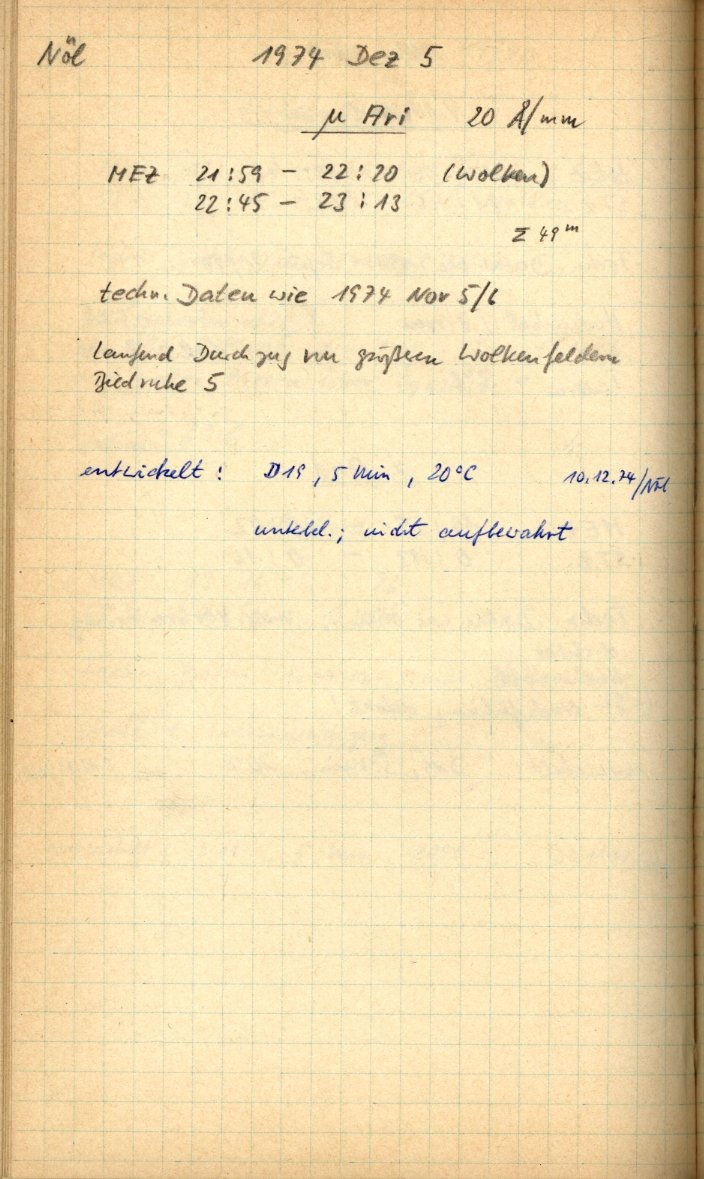 Nöl 1974 Dez 5
μ Ari 20 Å/mm
MEZ 21:59 – 22:20 (Wolken)
22:45 – 23:13
Σ 49ᵐ
techn. Daten wie 1974 Nov 5/6
laufend Durchzug von größeren Wolkenfeldern
Bildruhe 5
entwickelt: D19, 5 Min, 20°C 10.12.74/Nöl
unterbel.; nicht aufbewahrt